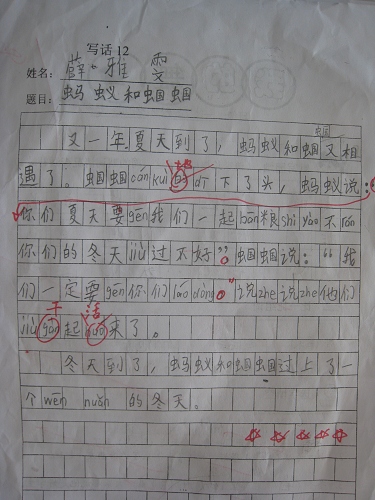 写话12
姓名：薛雅雯
题目：蚂蚁和蝈蝈
又一年夏天到了，蚂蚁和蝈蝈又相
遇了。蝈蝈cán kuì的dī下了头，蚂蚁说：
你们夏天要gēn我们一起bān粮shi yào不rán
你们的冬天jiù过不好”。蝈蝈说：“我
们一定要gēn你们láo dòng。”说zhe说zhe他们
jiù gàn起huó来了。
干 活
冬天到了，蚂蚁和蝈蝈过上了一
个wēn nuǎn的冬天。